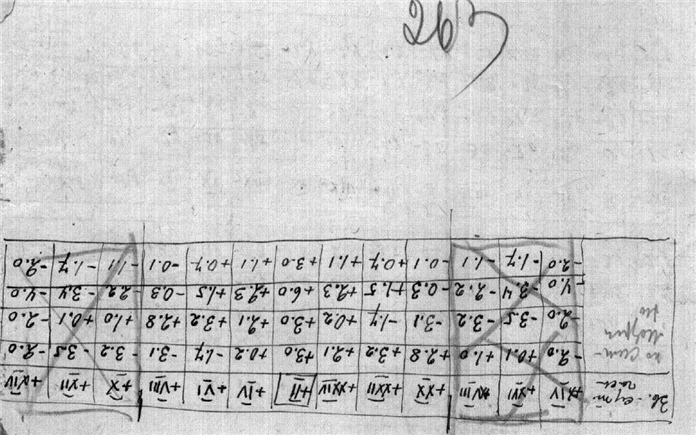 263
+XIV +XVI +XVIII +XX +XXII +XXIV +II +IV +VI +VIII +X +XII +XIV
-2.0 +0.1 +1.0 +2.8 +3.2 +2.1 +3.0 +0.2 -1.7 -3.1 -3.2 -3.5 -2.0
-2.0 -3.5 -3.2 -3.1 -1.7 +0.2 +3.0 +2.1 +3.2 +2.8 +1.0 +0.1 -2.0
-4.0 -3.4 -2.2 -0.3 +1.5 +2.3 +6.0 +2.3 +1.5 -0.3 -2.2 -3.4 -4.0
-2.0 -1.7 -1.1 -0.1 +0.7 +1.1 +3.0 +1.1 +0.7 -0.1 -1.1 -1.7 -2.0